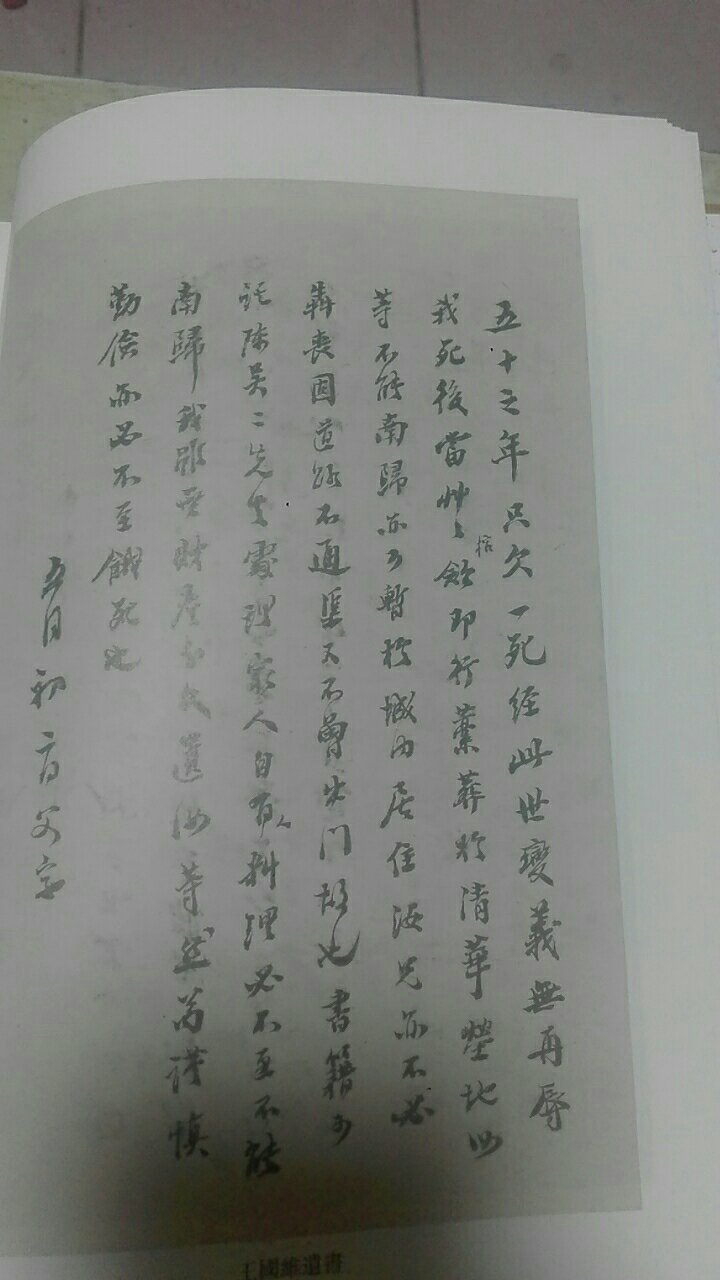 五十之年只欠一死經此世變義無再辱
我死後當艸〻棺斂即行藁葬於清華塋地汝
等不能南歸亦可暫於城內居住汝兄亦不必
奔喪因道路不通渠又不曾出門故也書籍可
託陳吳二先生處理家人自有人料理必不至不能
南歸我雖無財產分文遺汝等然苟謹慎
勤儉亦必不至餓死也
五月初二日父字
王國維遺書